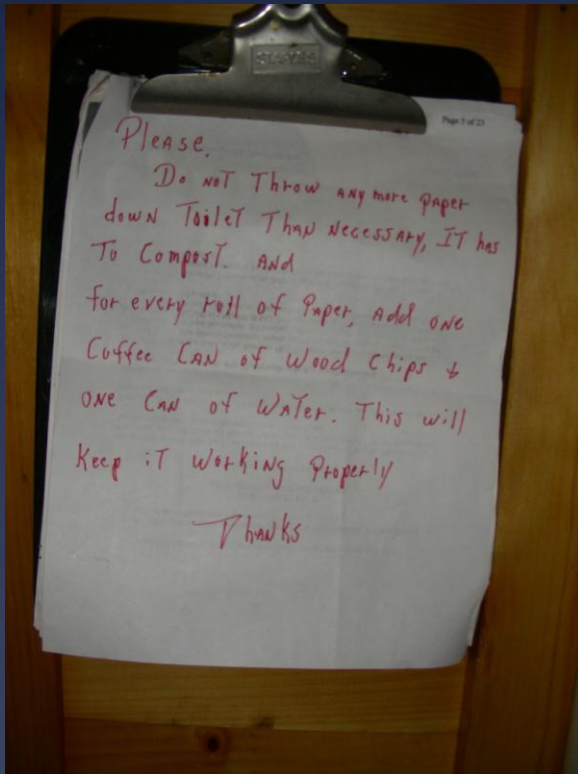 STAPLES
Page 5 of 23
Please,
Do NOT Throw any more paper
down Toilet Than Necessary, IT has
To Compost. And
for every roll of Paper, Add one
Coffee Can of Wood Chips &
one Can of Water. This will
Keep iT Working Properly
Thanks